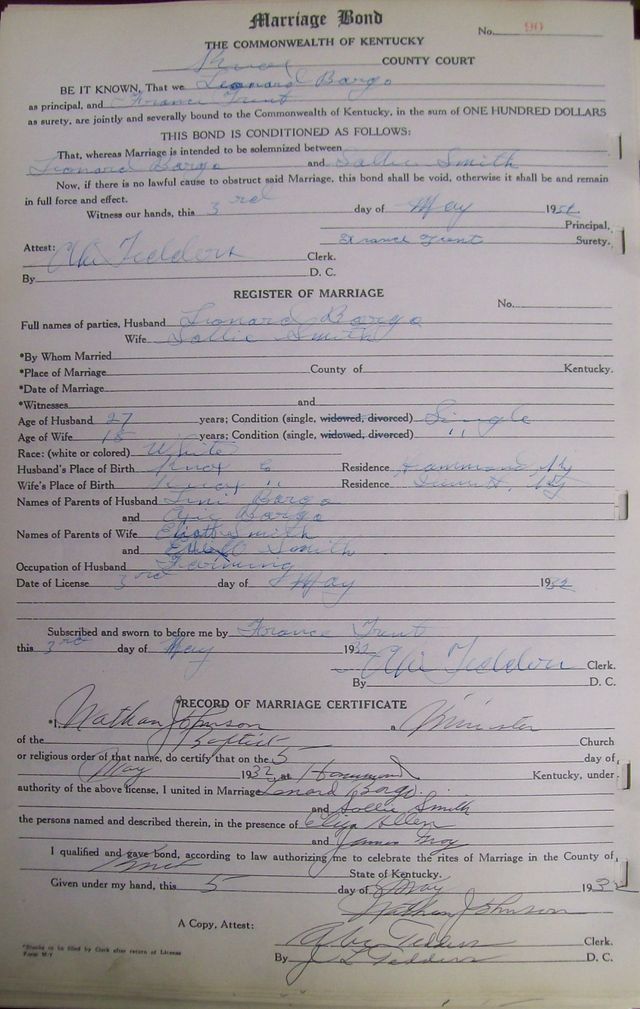 Marriage Bond
No. 90
THE COMMONWEALTH OF KENTUCKY
Knox COUNTY COURT
BE IT KNOWN, That we Leonard Bargo
as principal, and Trent
as surety, are jointly and severally bound to the Commonwealth of Kentucky, in the sum of ONE HUNDRED DOLLARS
THIS BOND IS CONDITIONED AS FOLLOWS:
That, whereas Marriage is intended to be solemnized between
Leonard Bargo and Sallie Smith
Now, if there is no lawful cause to obstruct said Marriage, this bond shall be void, otherwise it shall be and remain
in full force and effect.
Witness our hands, this 3rd day of May 19
Principal,
Trent Surety.
Attest: Clerk.
By D. C.
REGISTER OF MARRIAGE
No.
Full names of parties, Husband Leonard Bargo
Wife Sallie Smith
*By Whom Married
*Place of Marriage County of Kentucky.
*Date of Marriage
*Witnesses and
Age of Husband 27 years; Condition (single, widowed, divorced) Single
Age of Wife 18 years; Condition (single, widowed, divorced) ,,
Race: (white or colored) White
Husband's Place of Birth Knox Residence Hammond Ky
Wife's Place of Birth Knox ,, Residence Ky
Names of Parents of Husband Bargo
and Bargo
Names of Parents of Wife Smith
and Smith
Occupation of Husband Farming
Date of License 3rd day of May 1932
Subscribed and sworn to before me by Trent
this 3rd day of May 1932
Clerk.
By D. C.
*RECORD OF MARRIAGE CERTIFICATE
*I, Nathan Johnson a Minister
of the Baptist Church
or religious order of that name, do certify that on the 5 day of
May 1932 at Hammond Kentucky, under
authority of the above license, I united in Marriage Lenard Bargo
and Sallie Smith
the persons named and described therein, in the presence of Eliza Allen
and James
I qualified and gave bond, according to law authorizing me to celebrate the rites of Marriage in the County of
Knox State of Kentucky.
Given under my hand, this 5 day of May 1932
Nathan Johnson
A Copy, Attest:
Clerk.
By D. C.
*Blanks to be filed by Clerk after return of License
Form M-1